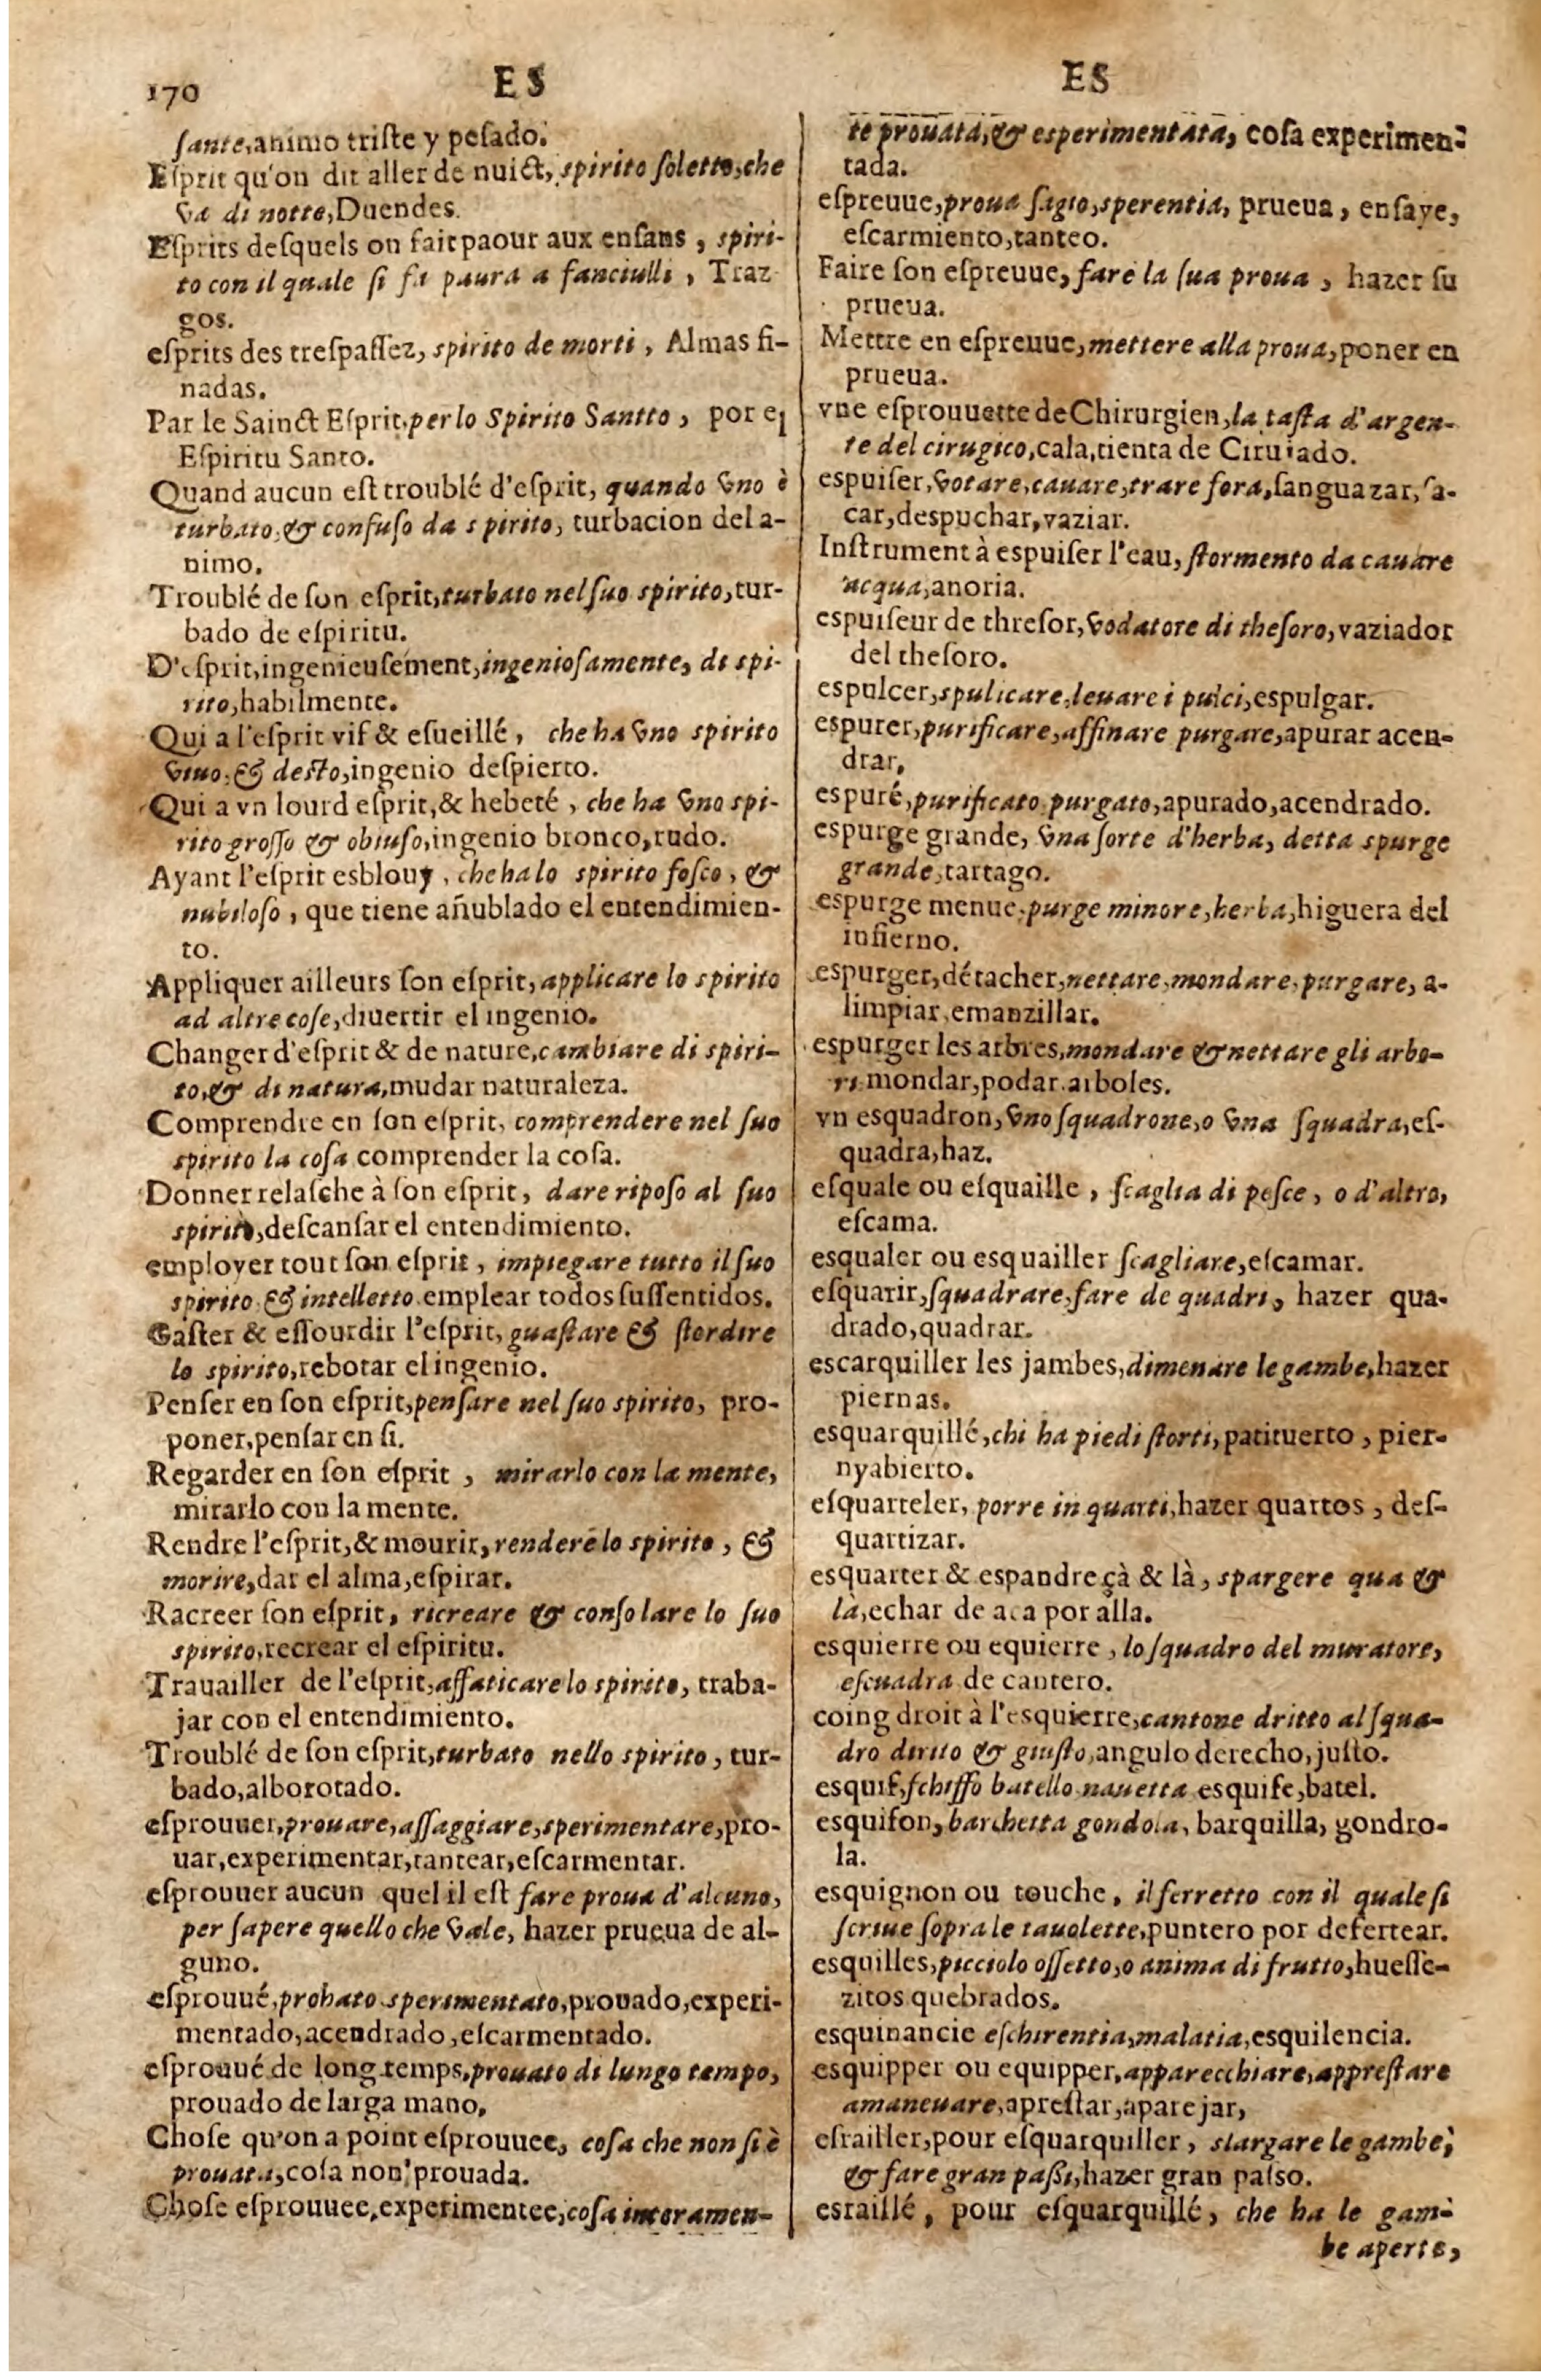 170
ES
ES
ſante,animo triſte y peſado.
Eſprit qu'on dit aller de nuict, ſpirito ſoletto,che
va di notte,Duendes.
Eſprits deſquels on fait paour aux enfans , ſpiri-
to con il quale ſi fa paura a fanciulli , Traz
gos.
eſprits des treſpaſſez, ſpirito de morti , Almas fi-
nadas.
Par le Sainct Eſprit,per lo Spirito Santto , por el
Eſpiritu Santo.
Quand aucun eſt troublé d'eſprit, quando vno è
turbato,& confuſo da spirito, turbacion del a-
nimo.
Troublé de ſon eſprit,turbato nel ſuo spirito,tur-
bado de eſpiritu.
D'eſprit,ingenieuſement,ingenioſamente, di spi-
rito,habilmente.
Qui a l'eſprit vif & eſueillé , che ha vno spirito
viuo,& deſto,ingenio deſpierto.
Qui a vn lourd eſprit,& hebeté , che ha vno spi-
rito groſſo & obtuſo,ingenio bronco,rudo.
Ayant l'eſprit esblouy , che ha lo spirito foſco , &
nubiloſo , que tiene añublado el entendimien-
to.
Appliquer ailleurs ſon eſprit, applicare lo spirito
ad altre coſe,diuertir el ingenio.
Changer d'eſprit & de nature,cambiare di spiri-
to,& di natura,mudar naturaleza.
Comprendre en ſon eſprit, comprendere nel ſuo
spirito la coſa comprender la coſa.
Donner relaſche à ſon eſprit, dare ripoſo al ſuo
spirito,deſcanſar el entendimiento.
employer tout ſon eſprit , impiegare tutto il ſuo
spirito & intelletto emplear todos ſuſſentidos.
Gaſter & eſſourdir l'eſprit, guaſtare & ſtordire
lo spirito,rebotar el ingenio.
Penſer en ſon eſprit,penſare nel ſuo spirito, pro-
poner,penſar en ſi.
Regarder en ſon eſprit , mirarlo con la mente,
mirarlo con la mente.
Rendre l'eſprit,& mourir,rendere lo spirito , &
morire,dar el alma,eſpirar.
Racreer ſon eſprit, ricreare & conſolare lo ſuo
spirito,recrear el eſpiritu.
Trauailler de l'eſprit,affaticare lo spirito, traba-
jar con el entendimiento.
Troublé de ſon eſprit,turbato nello spirito , tur-
bado,alborotado.
eſprouuer,prouare,aſſaggiare,sperimentare,pro-
uar,experimentar,tantear,eſcarmentar.
eſprouuer aucun quel il eſt fare proua d'alcuno,
per ſapere quello che vale, hazer prueua de al-
guno.
eſprouué,probato sperimentato,prouado,experi-
mentado,acendrado,eſcarmentado.
eſprouué de long temps,prouato di lungo tempo,
prouado de larga mano.
Choſe qu'on a point eſprouuee, coſa che non ſi è
prouata,coſa non prouada.
Choſe eſprouuee,experimentee,coſa interamen-
te prouata,& esperimentata, coſa experimen-
tada.
eſpreuue,proua ſagio,sperentia, prueua , enſaye,
eſcarmiento,tanteo.
Faire ſon eſpreuue, fare la ſua proua , hazer ſu
prueua.
Mettre en eſpreuue,mettere alla proua,poner en
prueua.
vne eſprouuette de Chirurgien,la taſta d'argen-
te del cirugico,cala,tienta de Cirujado.
espuiſer,votare,cauare,trare fora,ſanguazar,ſa-
car,despuchar,vaziar.
Inſtrument à espuiſer l'eau, ſtormento da cauare
acqua,anoria.
espuiſeur de threſor,vodatore di theſoro,vaziador
del theſoro.
espulcer,spulicare,leuare i pulci,espulgar.
espurer,purificare,affinare purgare,apurar acen-
drar,
espuré,purificato purgato,apurado,acendrado.
espurge grande, vna ſorte d'herba, detta spurge
grande,tartago.
espurge menue,purge minore,herba,higuera del
infierno.
espurger,détacher,nettare,mondare,purgare, a-
limpiar,emanzillar.
espurger les arbres,mondare & nettare gli arbo-
ri mondar,podar arboles.
vn esquadron,vno ſquadrone,o vna ſquadra,eſ-
quadra,haz.
eſquale ou eſquaille , ſcaglia di peſce , o d'altro,
eſcama.
esqualer ou esquailler ſcagliare,eſcamar.
eſquarir,ſquadrare,fare de quadri, hazer qua-
drado,quadrar.
escarquiller les jambes,dimenare le gambe,hazer
piernas.
esquarquillé,chi ha piedi ſtorti,patituerto , pier-
nyabierto.
eſquarteler, porre in quarti,hazer quartos , deſ-
quartizar.
esquarter & espandre çà & là, spargere qua &
là,echar de aca por alla.
esquierre ou equierre , lo ſquadro del muratore,
eſcuadra de cantero.
coing droit à l'esquierre,cantone dritto al ſqua-
dro diritto & giuſto,angulo derecho,juſto.
esquif,ſchiffo batello nauetta esquife,batel.
esquifon, barchetta gondola, barquilla, gondro-
la.
esquignon ou touche, il ferretto con il quale ſi
ſcriue ſopra le tauolette,puntero por defertear.
esquilles,picciolo oſſetto,o anima di frutto,hueſſe-
zitos quebrados.
esquinancie eſchirentia,malatia,esquilencia.
esquipper ou equipper,apparecchiare,appreſtare
amaneuare,apreſtar,aparejar,
eſrailler,pour eſquarquiller , slargare le gambe,
& fare gran paßi,hazer gran paſſo.
esraillé , pour eſquarquillé , che ha le gam-
be aperte,